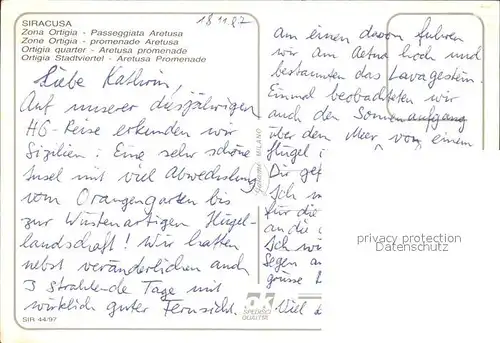 18.11.87
SIRACUSA
Zona Ortigia - Passeggiata Aretusa
Zone Ortigia - promenade Aretusa
Ortigia quarter - Aretusa promenade
Ortigia Stadtviertel - Aretusa Promenade
Liebe Kathrin,
Auf unserer diesjährigen
HG-Reise erkunden wir
Sizilien: Eine sehr schöne
Insel mit viel Abwechslung
vom Orangengarten bis
zur Wüstenartigen Hügel-
landschaft! Wir hatten
nebst veränderlichen auch
3 strahlende Tage mit
wirklich guter Fernsicht.
SIR 44/97
MILANO
SPEDISCI
QUALITÀ
am einen davon fuhren
wir am Aetna hoch und
bestaunten das Lavagestein.
Einmal beobachteten wir
auch den Sonnenaufgang
über dem Meer von einem
Hügel
Dir gef
Ich
für die
an die
Ich wü
Segen
grüsse
Viel
privacy protection
Datenschutz